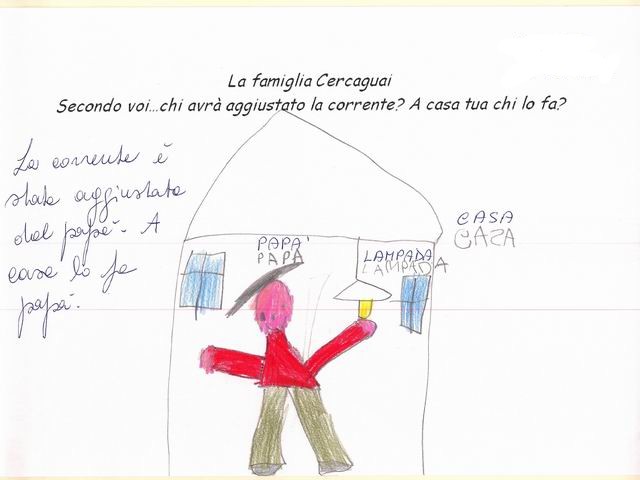 La famiglia Cercaguai
Secondo voi...chi avrà aggiustato la corrente? A casa tua chi lo fa?
La corrente è
stata aggiustata
dal papà. A
casa lo fa
papà.
PAPA'
PAPÀ
LAMPADA
LAMPADA
CASA
CASA